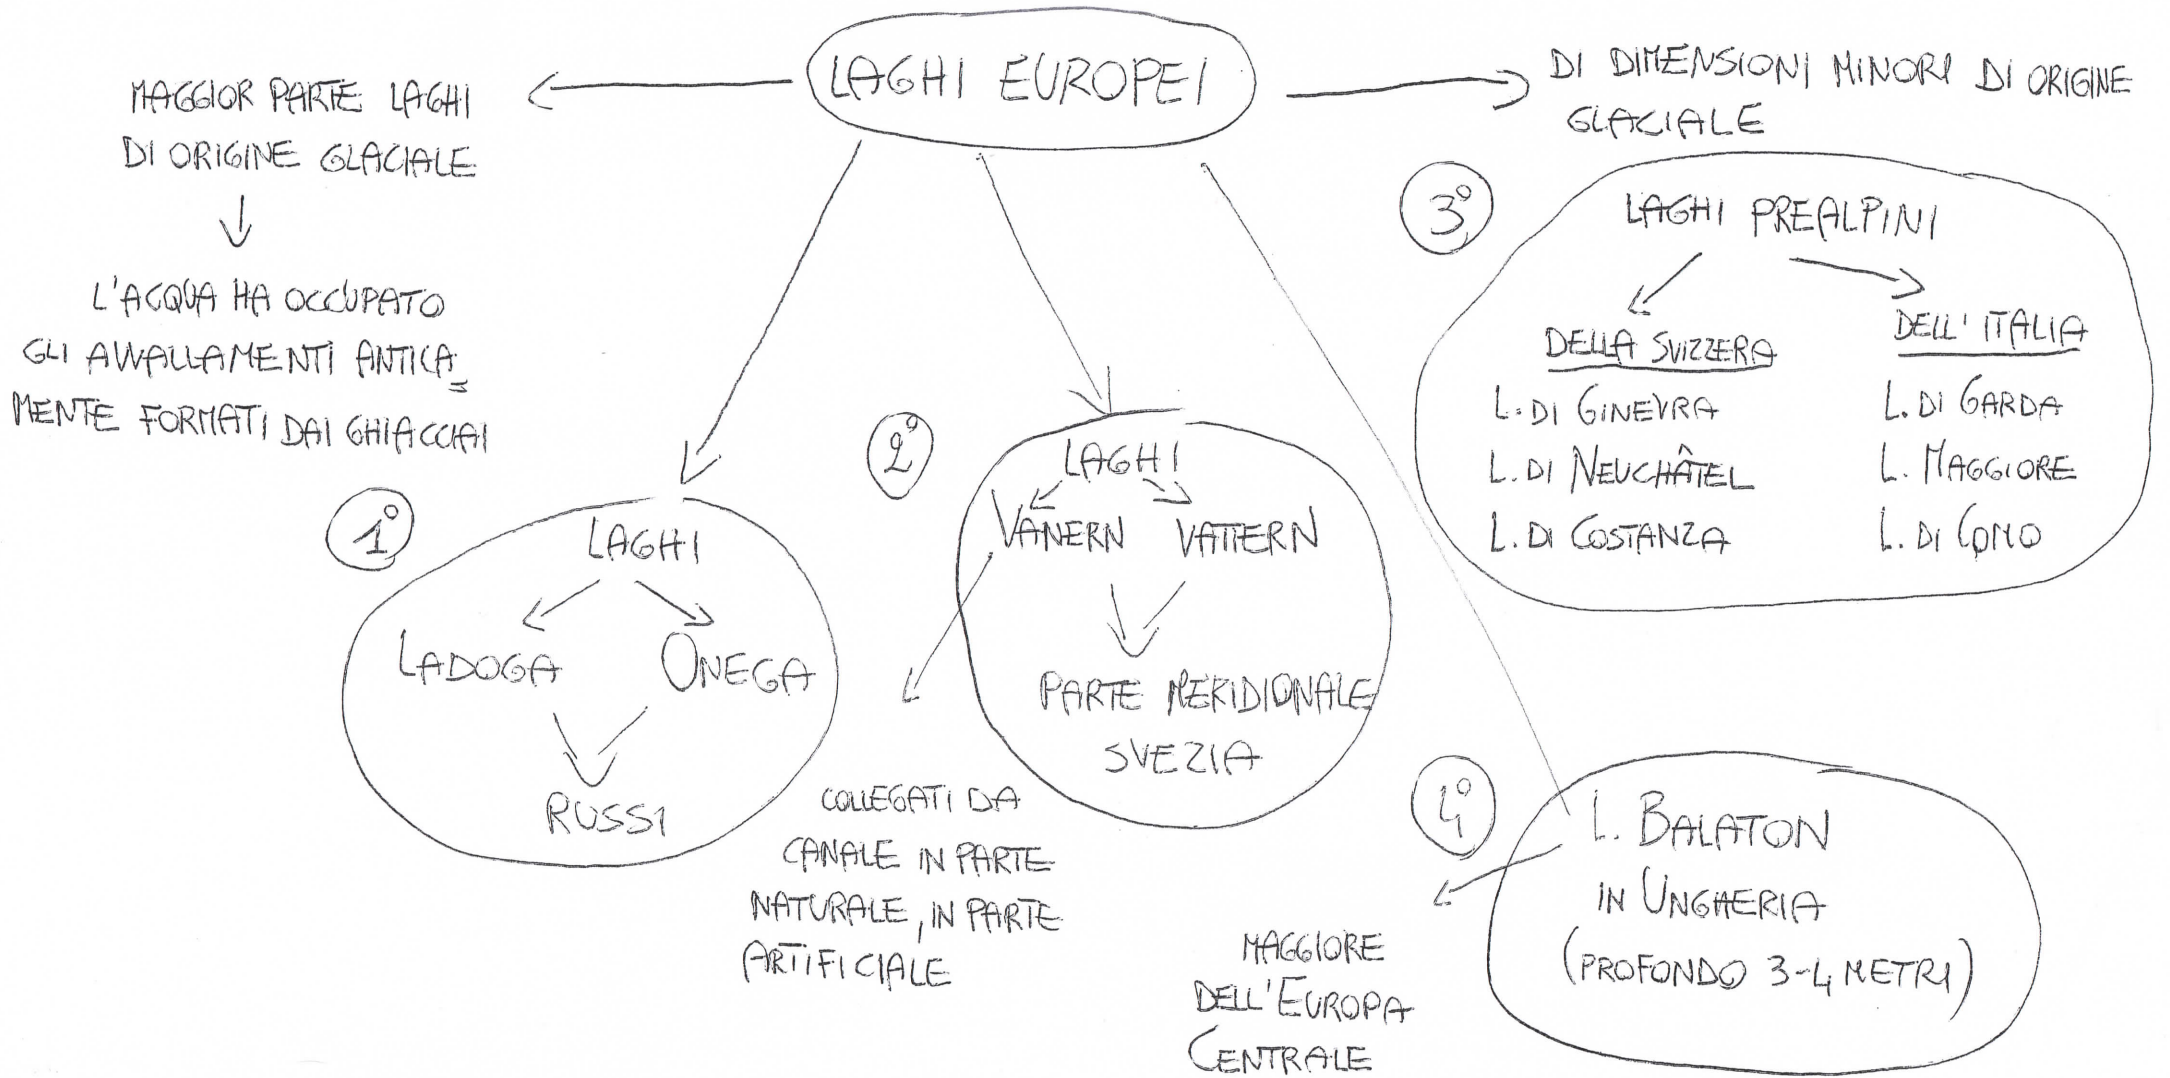 LAGHI EUROPEI
MAGGIOR PARTE LAGHI
DI ORIGINE GLACIALE
L'ACQUA HA OCCUPATO
GLI AVVALLAMENTI ANTICA=
MENTE FORMATI DAI GHIACCIAI
DI DIMENSIONI MINORI DI ORIGINE
GLACIALE
1°
LAGHI
LADOGA ONEGA
RUSSI
2°
LAGHI
VANERN VATTERN
PARTE MERIDIONALE
SVEZIA
COLLEGATI DA
CANALE IN PARTE
NATURALE, IN PARTE
ARTIFICIALE
3°
LAGHI PREALPINI
DELLA SVIZZERA
L. DI GINEVRA
L. DI NEUCHÂTEL
L. DI COSTANZA
DELL'ITALIA
L. DI GARDA
L. MAGGIORE
L. DI COMO
4°
L. BALATON
IN UNGHERIA
(PROFONDO 3-4 METRI)
MAGGIORE
DELL'EUROPA
CENTRALE